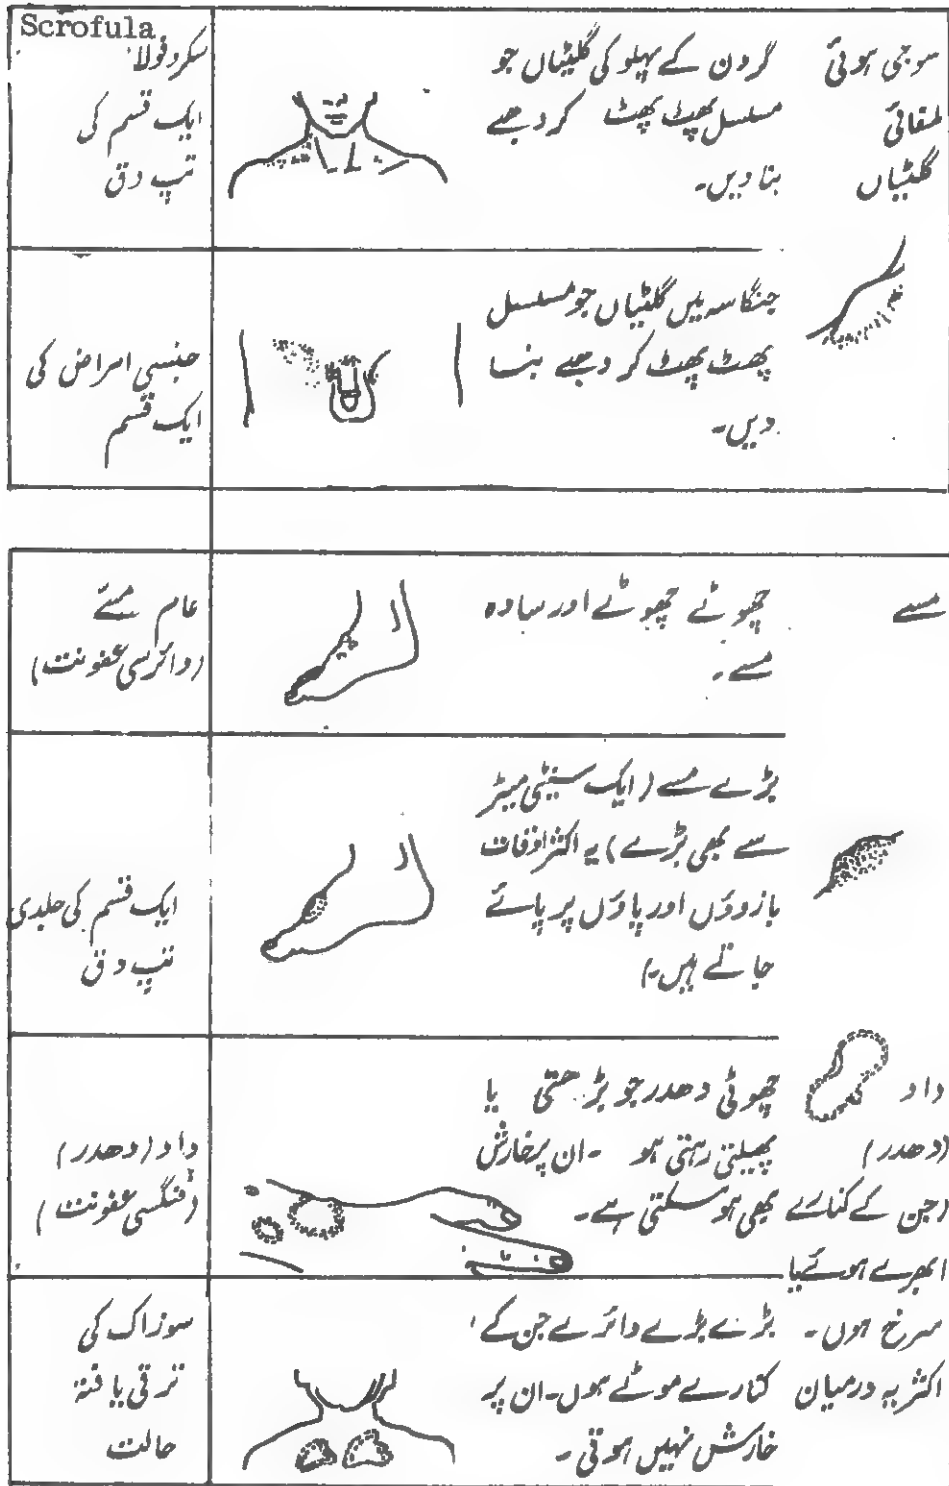 سوجی ہوئی
لمفائی
گلٹیاں
گردن کے پہلو کی گلٹیاں جو
مسلسل پھٹ پھٹ کر دھبے
بنا دیں۔
Scrofula
سکروفولا
ایک قسم کی
تپ دق
جنگاسہ میں گلٹیاں جو مسلسل
پھٹ پھٹ کر دھبے بنا
دیں۔
جنسی امراض کی
ایک قسم
مسے
چھوٹے چھوٹے اور سادہ
مسے۔
عام مسے
(وائرسی عفونت)
بڑے مسے (ایک سینٹی میٹر
سے بھی بڑے) یہ اکثر اوقات
بازوؤں اور پاؤں پر پائے
جاتے ہیں۔)
ایک قسم کی جلدی
تپ دق
داد
(دھدر)
(جن کے کنارے
ابھرے ہوئے یا
سرخ ہوں۔
اکثر یہ درمیان
چھوٹی دھدر جو بڑھتی یا
پھیلتی رہتی ہو۔ ان پر خارش
بھی ہو سکتی ہے۔
داد (دھدر)
(فنگسی عفونت)
بڑے بڑے دائرے جن کے
کنارے موٹے ہوں۔ ان پر
خارش نہیں ہوتی۔
سوزاک کی
ترقی یافتہ
حالت